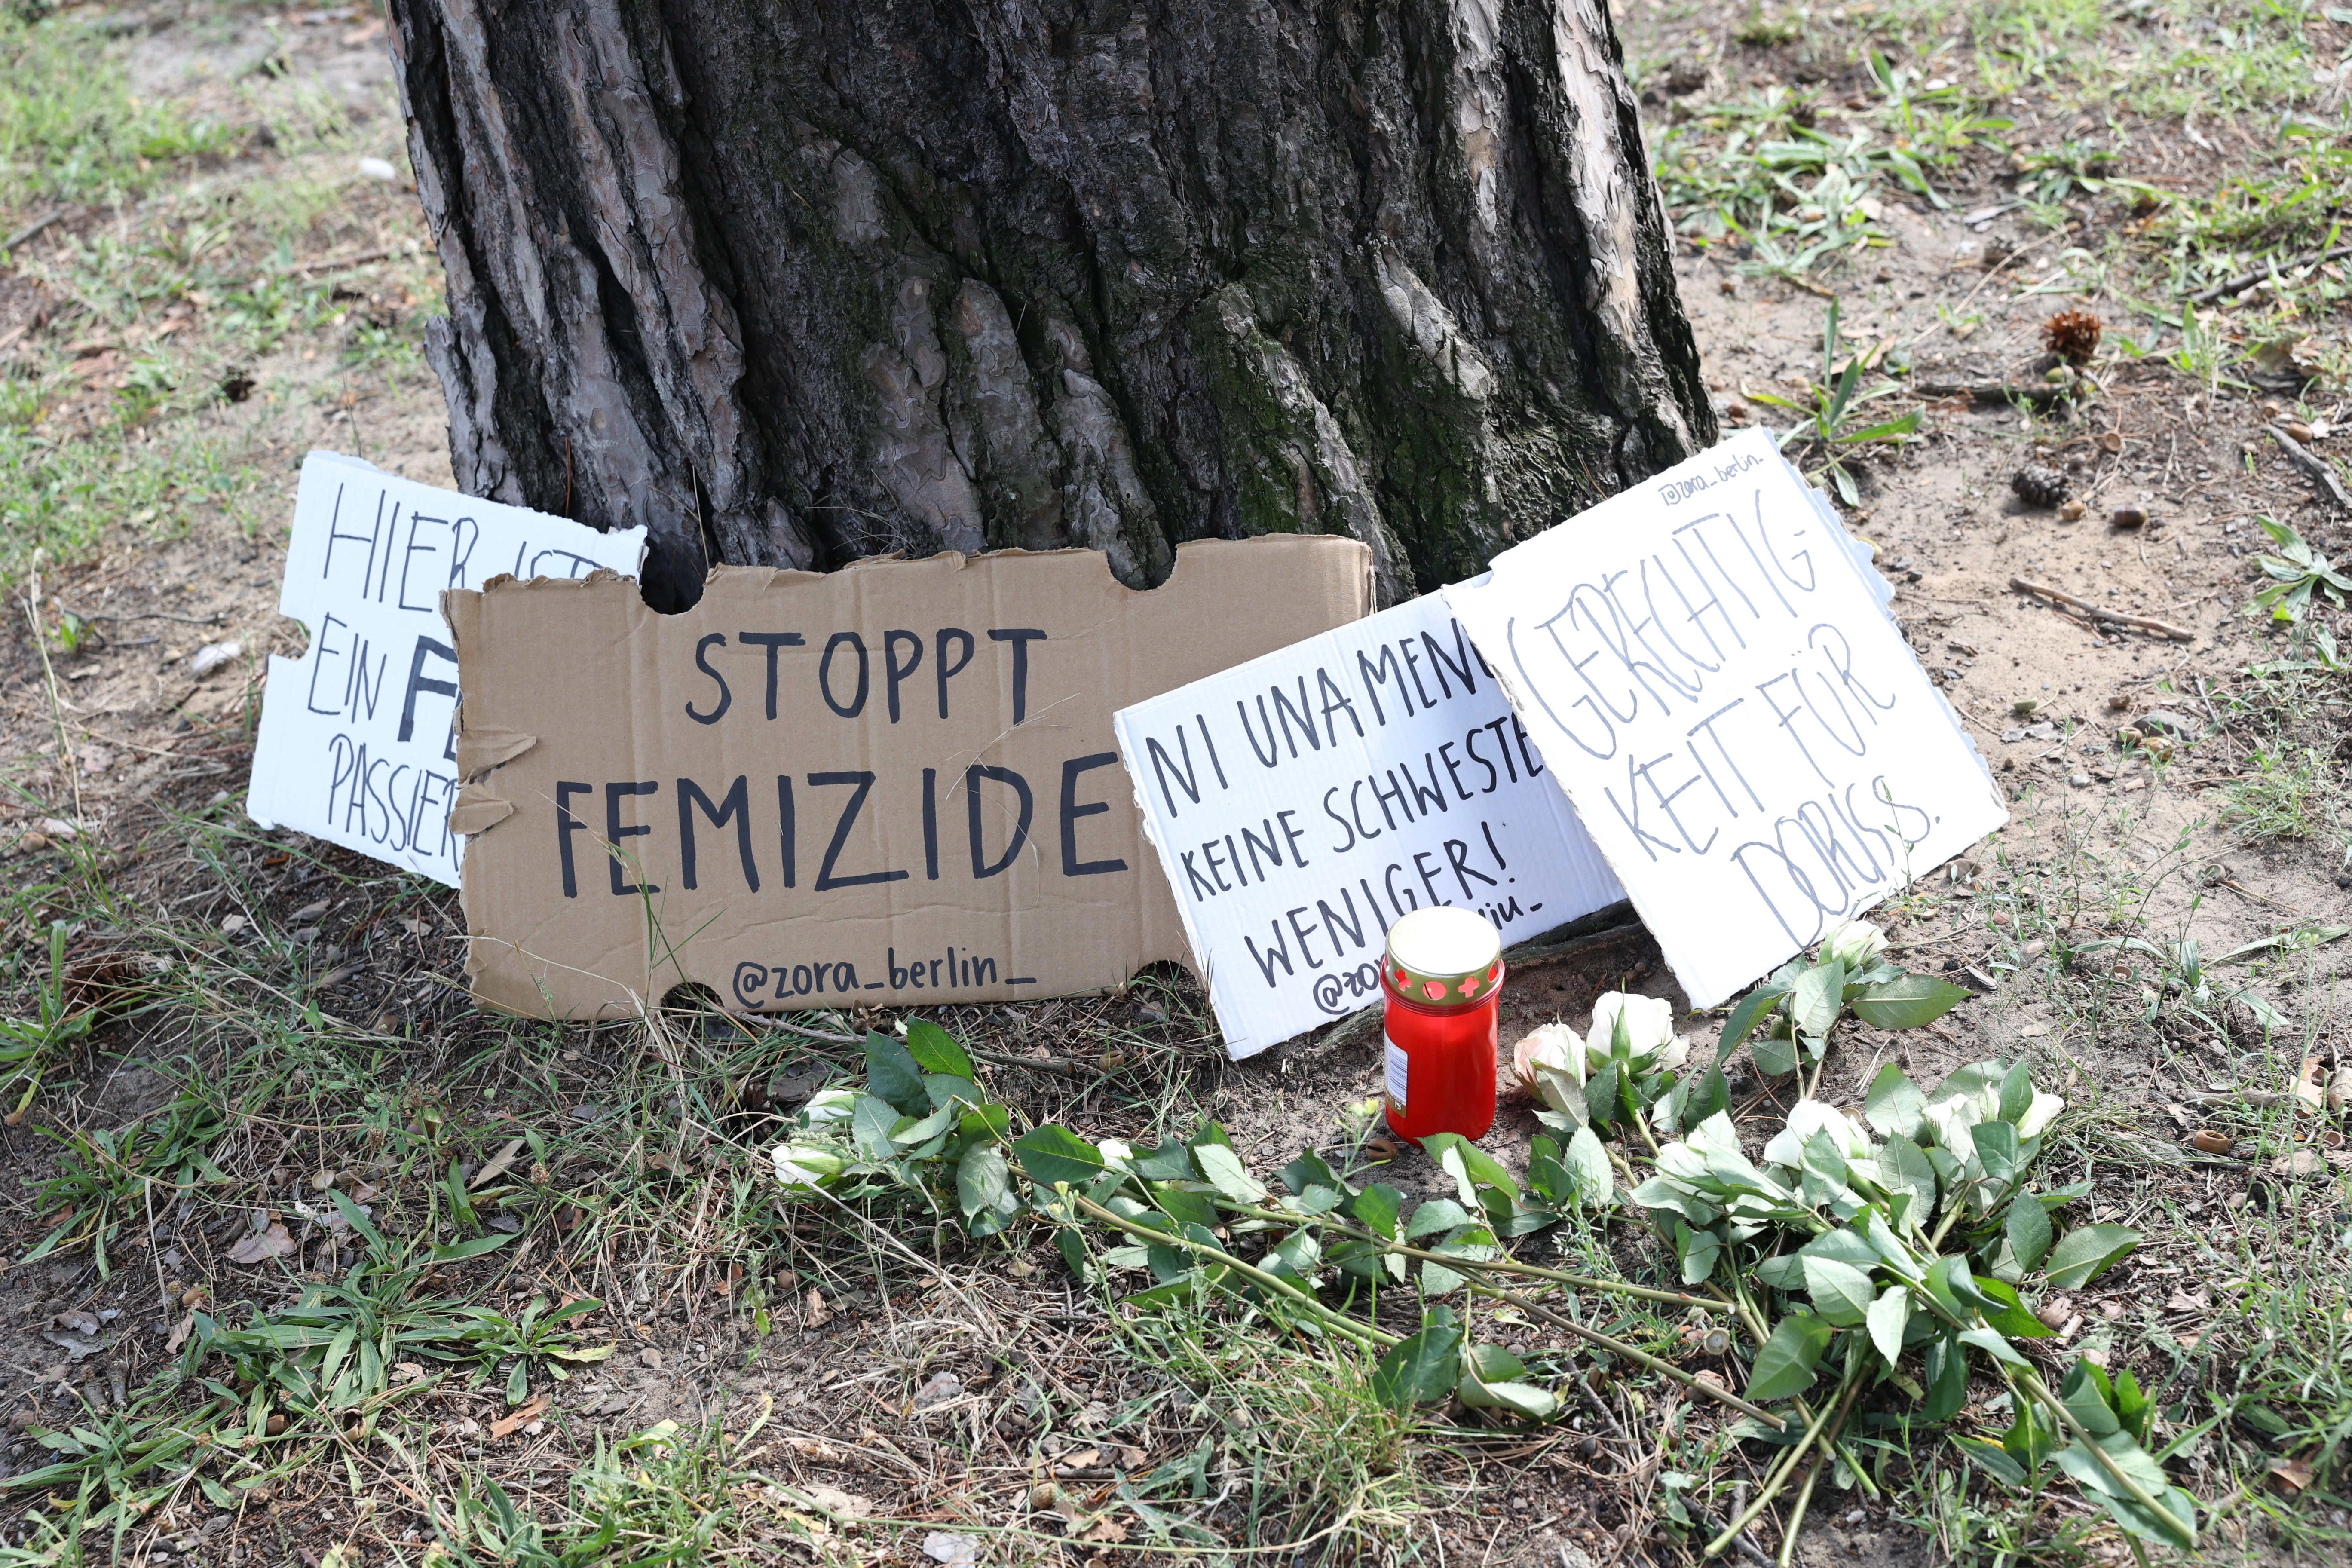 HIER IST
EIN
PASSIER
STOPPT
FEMIZIDE
@zora_berlin_
NI UNA MEN
KEINE SCHWESTE
WENIGER!
@zo
@zora_berlin_
GERECHTIG-
KEIT FÜR
DORIS S.